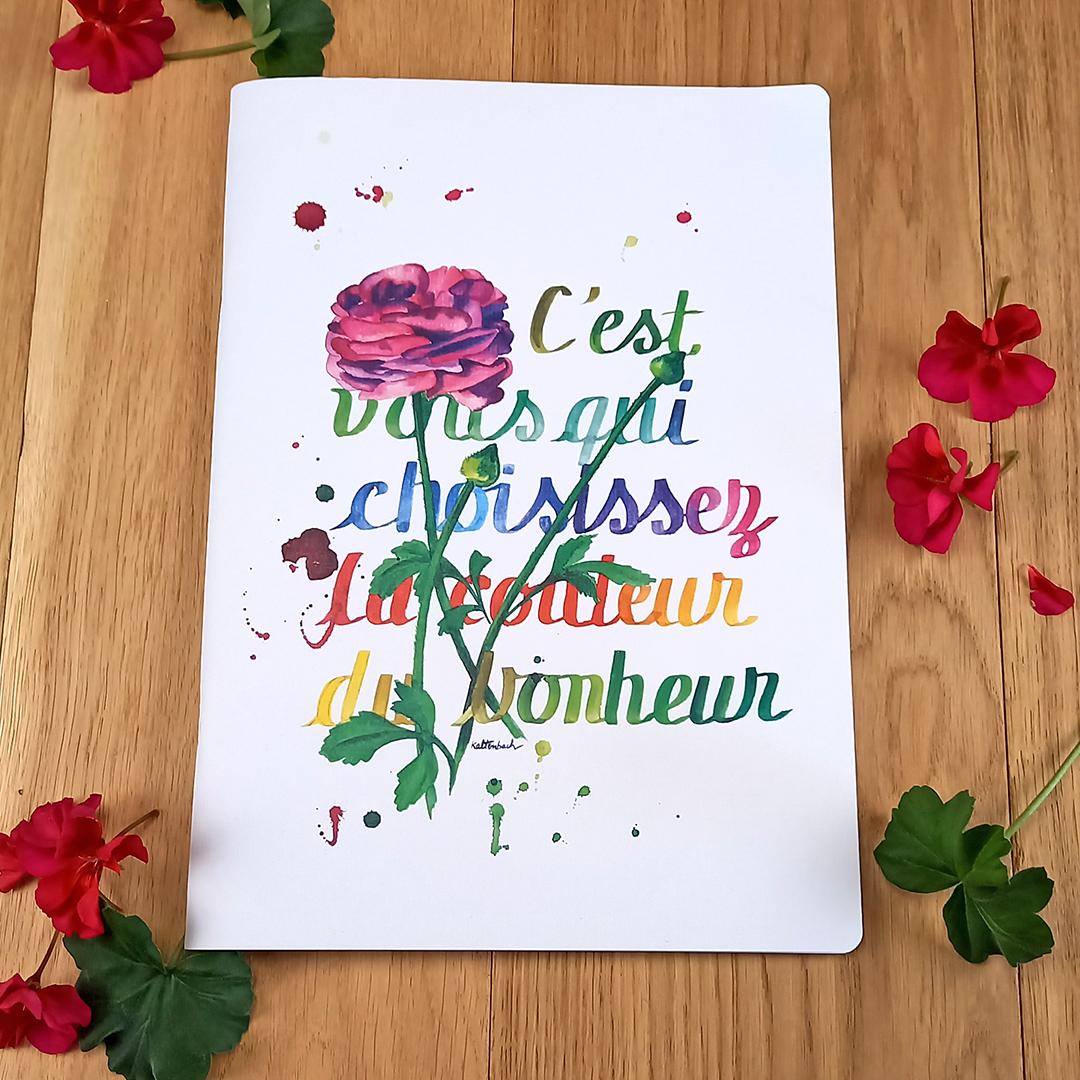 C'est
vous qui
choisissez
la couleur
du bonheur
Kaltenbach